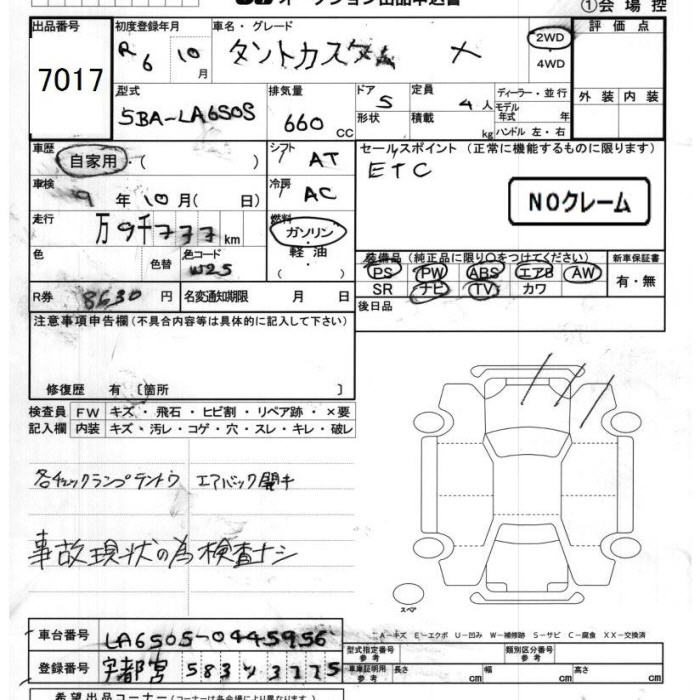 オークション出品申込書
①会場控
出品番号 初度登録年月 車名・グレード 評価点
7017 R6 10月 タントカスタム X 2WD・4WD
外装 内装
型式 排気量 ドア 定員 ディーラー・並行
5BA-LA650S 660cc 5 4人 モデル年式 年
形状 積載 kg ハンドル 左・右
車歴 シフト セールスポイント(正常に機能するものに限ります)
自家用・( ) AT ETC
車検 冷房
9年10月(日) AC NOクレーム
走行 燃料
万9千777km ガソリン・軽油・( )
色 色替 色コード W25
装備品(純正品に限り○をつけてください) 新車保証書
PS PW ABS エアB AW 有・無
SR ナビ TV カワ
R券 8630円 名変通知期限 月 日 後日品
注意事項申告欄(不具合内容等は具体的に記入して下さい)
修復歴 有〔箇所 〕
検査員 FW キズ・飛石・ヒビ割・リペア跡・×要
記入欄 内装 キズ・汚レ・コゲ・穴・スレ・キレ・破レ
各チェックランプテントウ エアバック開キ
事故現状の為検査ナシ
スペア
A-キズ E-エクボ U-凹み W-補修跡 S-サビ C-腐食 XX-交換済
車台番号 LA650S-0445956
型式指定番号参考 類別区分番号
登録番号 宇都宮 583
車庫証明用参考 長さ cm 幅 cm 高さ cm
希望出品コーナー(コーナー名は各会場により異なります。)